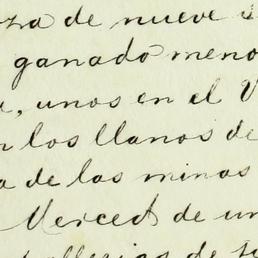 za de nueve
ganado meno
a, unos en el V
n los llanos de
a de las minas
Merced de un
de